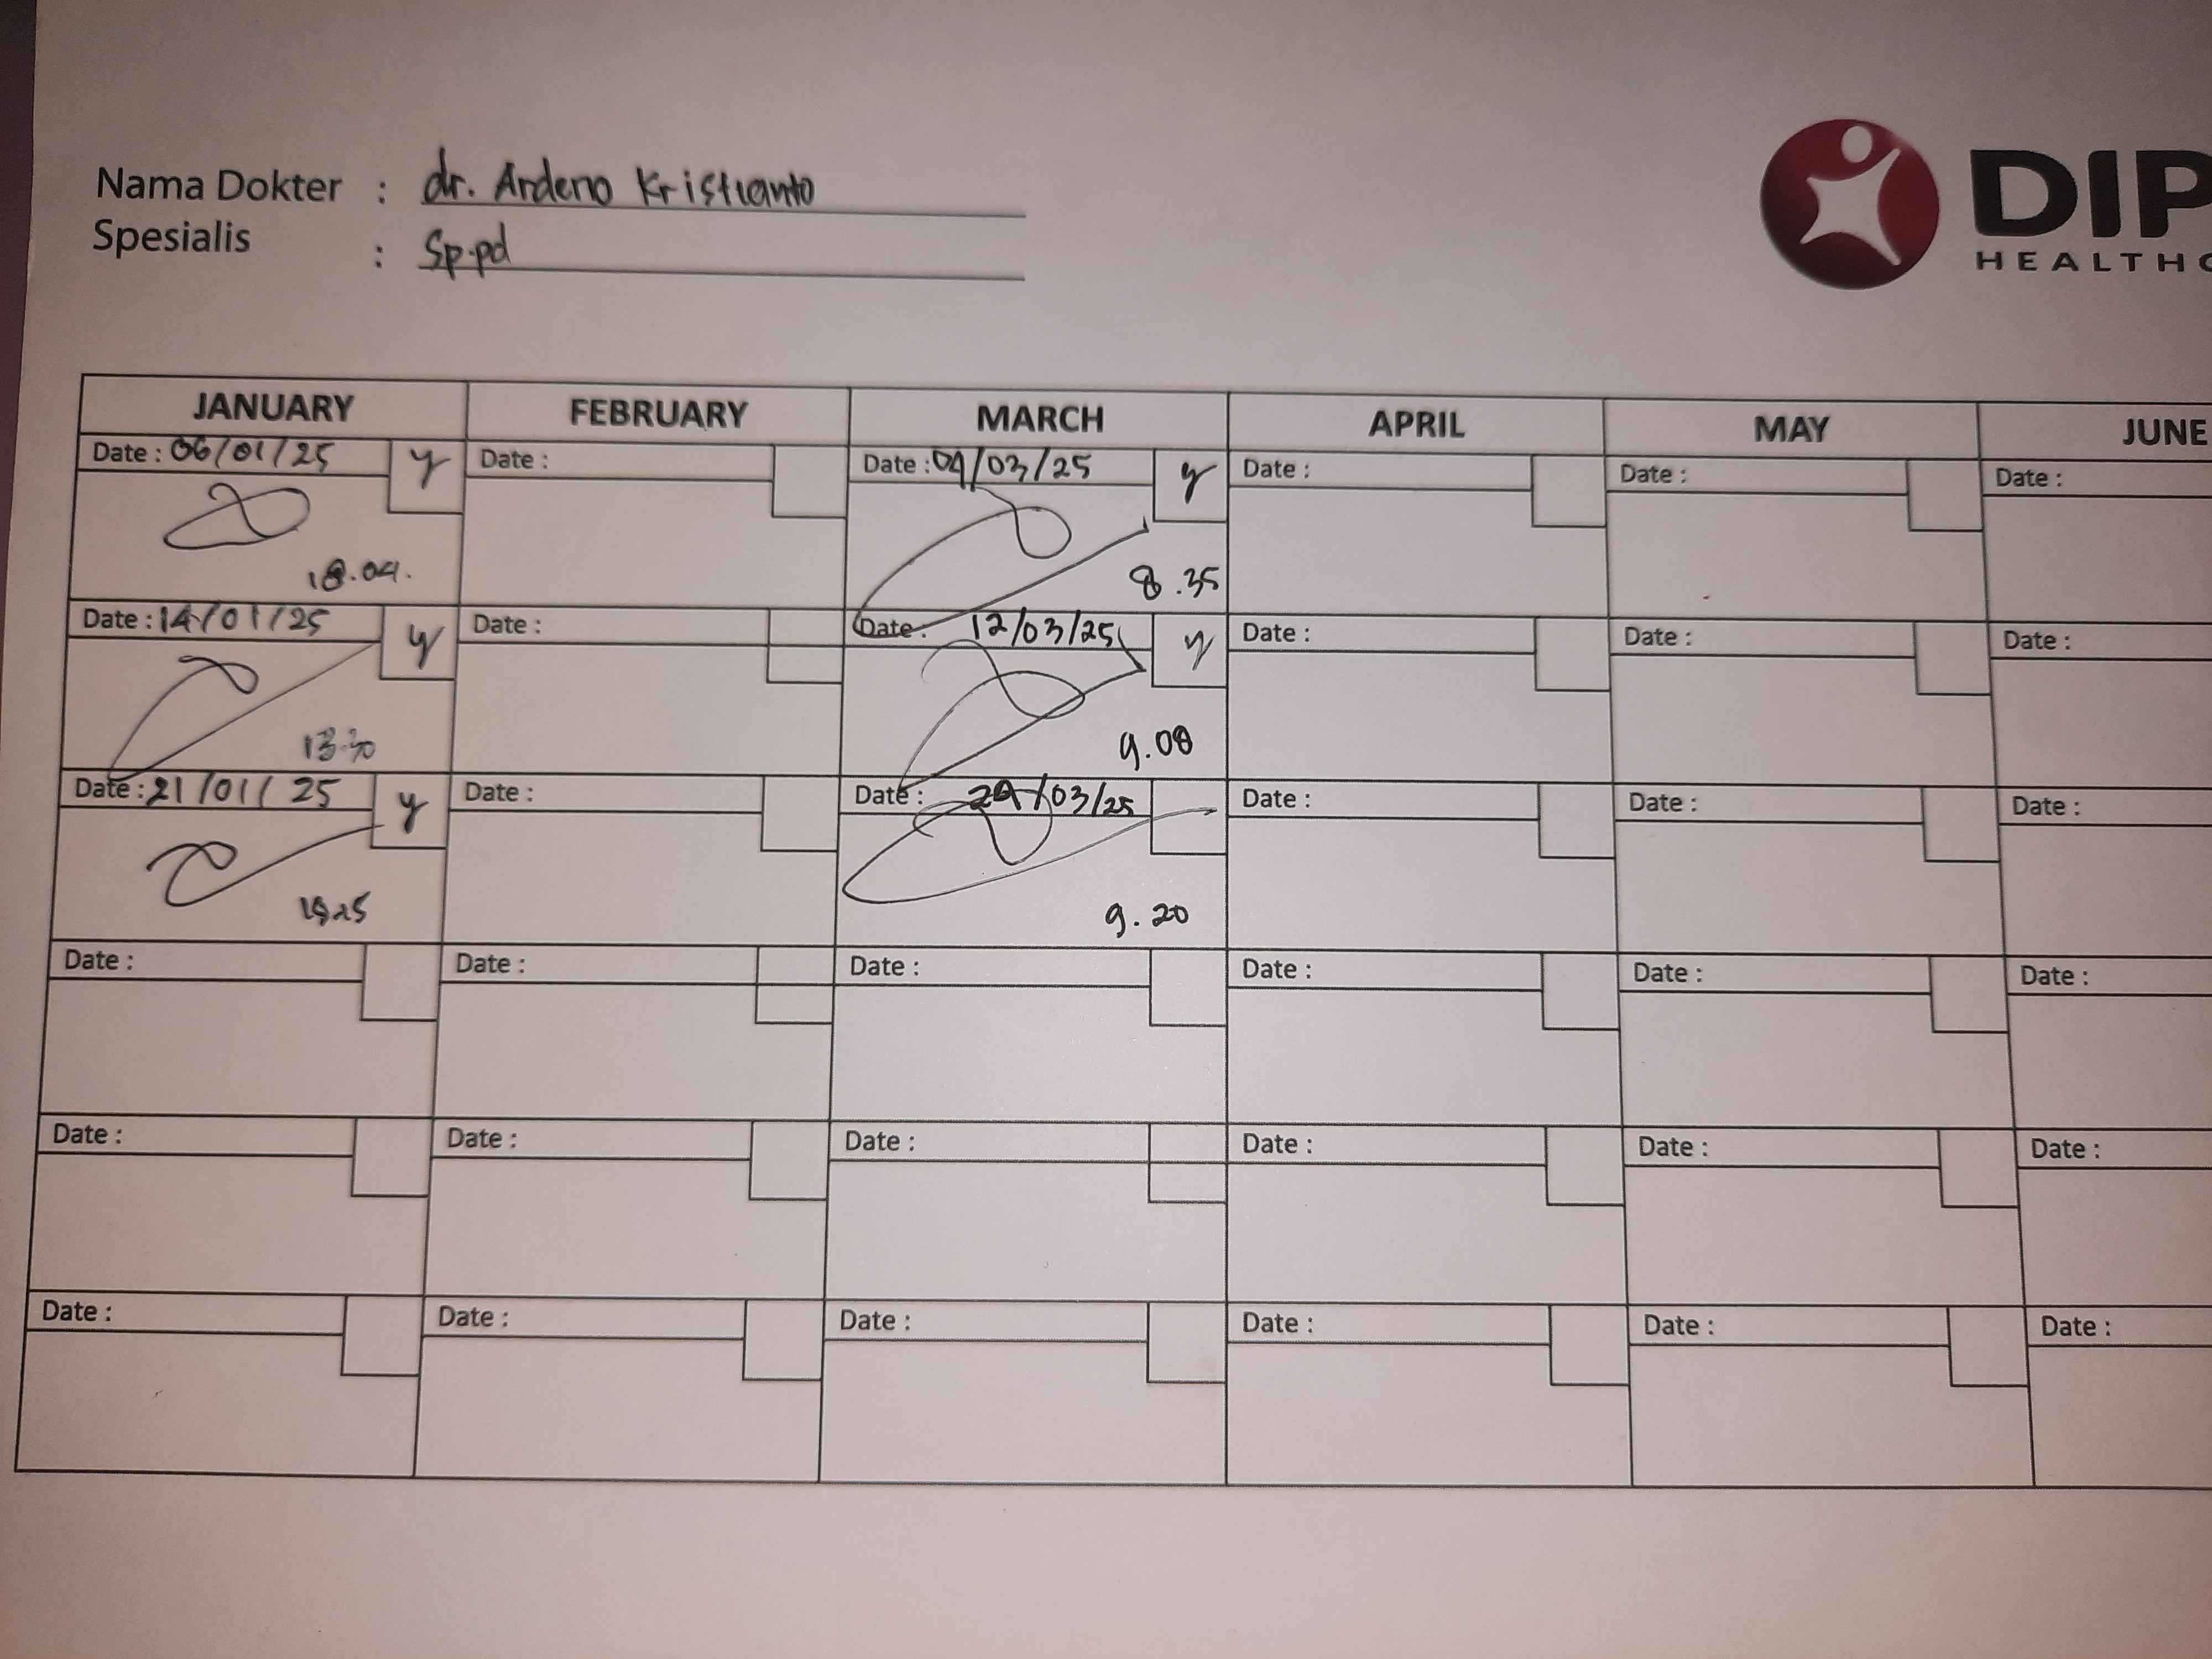 Nama Dokter : dr. Ardeno Kristianto
Spesialis : Sp.pd
DIP
HEALTHC
JANUARY FEBRUARY MARCH APRIL MAY JUNE
Date : 06/01/25 y Date : Date : 04/03/25 y Date : Date : Date :
18.04. 8.35
Date : 14/01/25 y Date : Date : 12/03/25 y Date : Date : Date :
13.30 9.08
Date : 21/01/25 y Date : Date : 24/03/25 Date : Date : Date :
9.20
Date : Date : Date : Date : Date : Date :
Date : Date : Date : Date : Date : Date :
Date : Date : Date : Date : Date : Date :